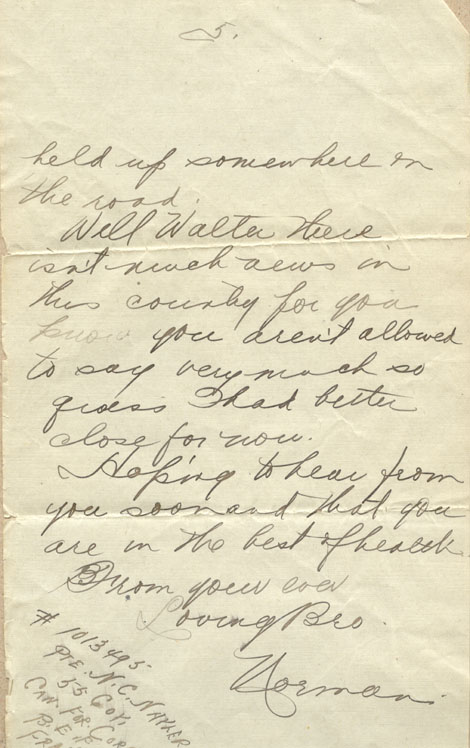 5.
held up somewhere on
the road.
Well Walter there
isn't much news in
this country for you
know you aren't allowed
to say very much so
guess I had better
close for now.
Hoping to hear from
you soon and that you
are in the best of health.
From your ever
Loving Bro.
Norman.
# 1013495
PTE. N.C. NAYLER
55 COY.
CAN. FOR. CORP
B.E.F.
FRA